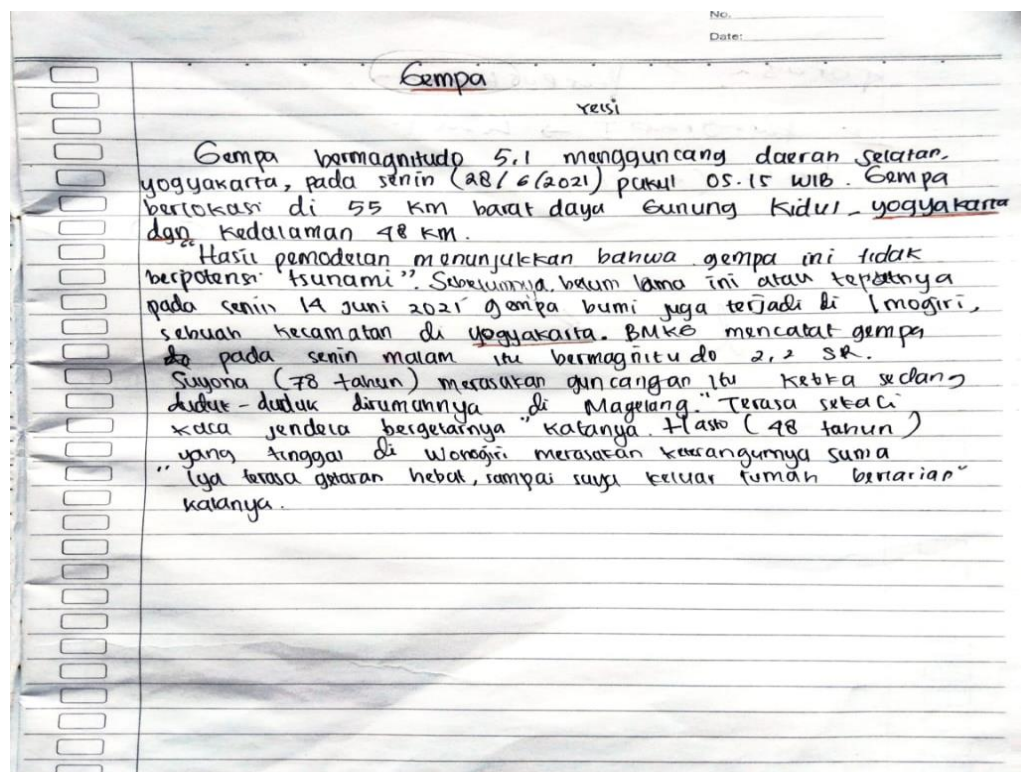 No.
Date:
Gempa
Gempa bermagnitudo 5,1 mengguncang daerah selatan,
yogyakarta, pada senin (28/6/2021) pukul 05.15 WIB. Gempa
berlokasi di 55 KM barat daya Gunung Kidul - yogyakarta
dgn kedalaman 48 KM.
"Hasil pemodelan menunjukkan bahwa gempa ini tidak
berpotensi tsunami". Sebelumnya, belum lama ini atau tepatnya
pada senin 14 Juni 2021 gempa bumi juga terjadi di Imogiri,
sebuah kecamatan di yogyakarta. BMKG mencatat gempa
pada senin malam itu bermagnitudo 2,2 SR.
Suyona (78 tahun) merasakan guncangan itu ketika sedang
duduk-duduk dirumahnya di Magelang. "Terasa sekali
kaca jendela bergetarnya" katanya. Hasto (48 tahun)
yang tinggal di Wonogiri merasakan
"Iya terasa getaran hebat, sampai saya keluar rumah berlarian"
katanya.